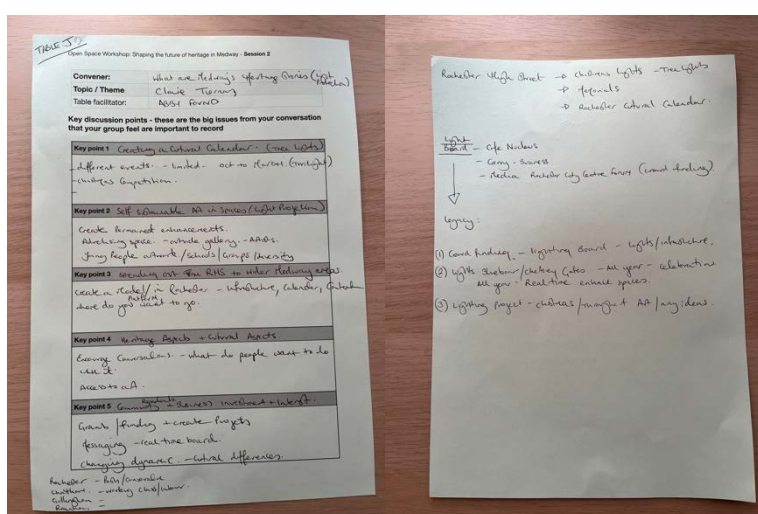 TABLE J
Open Space Workshop: Shaping the future of heritage in Medway - Session 2
Convener: What are Medway's Stories (Light
Topic / Theme Claire Tierney
Table facilitator: ABBY FOUND
Key discussion points - these are the big issues from your conversation
that your group feel are important to record
Key point 1 Creating a Cultural Calendar - (Tree lights)
- different events. - limited - oct to March. (twilight)
- Childrens Competition.
Key point 2 Self Art in Spaces (Light Projection)
Create Permanent enhancements.
Advertising space. - outside gallery. -
Young People artwork / Schools / Groups / diversity
Key point 3 Spending out from RHS to wider Medway areas.
Create a Model / Platform in Rochester - infrastructure, Calendar,
where do you want to go.
Key point 4 Heritage Aspects + Cultural Aspects
Encourage Conversations. - what do people want to do
with it.
Access to art.
Key point 5 Community + Business investment + interest.
Grants / funding + create Projects
Messaging - real-time board.
Changing dynamic. - Cultural differences.
Rochester -
Chatham. - working class / labour.
Gillingham -
Rainham -
Rochester High Street → Childrens lights - Tree lights
→ Memorials
→ Rochester Cultural Calendar.
Light
Board - Cafe Nucleus
- Business
- Medway Rochester City Centre Forum (crowd funding)
Legacy:
(1) Crowd funding - lighting Board - lights / infrastructure.
(2) Lights / Gates - All year - celebrations
All year - Real-time enhance spaces.
(3) Lighting Project - / throughout Art / any ideas.